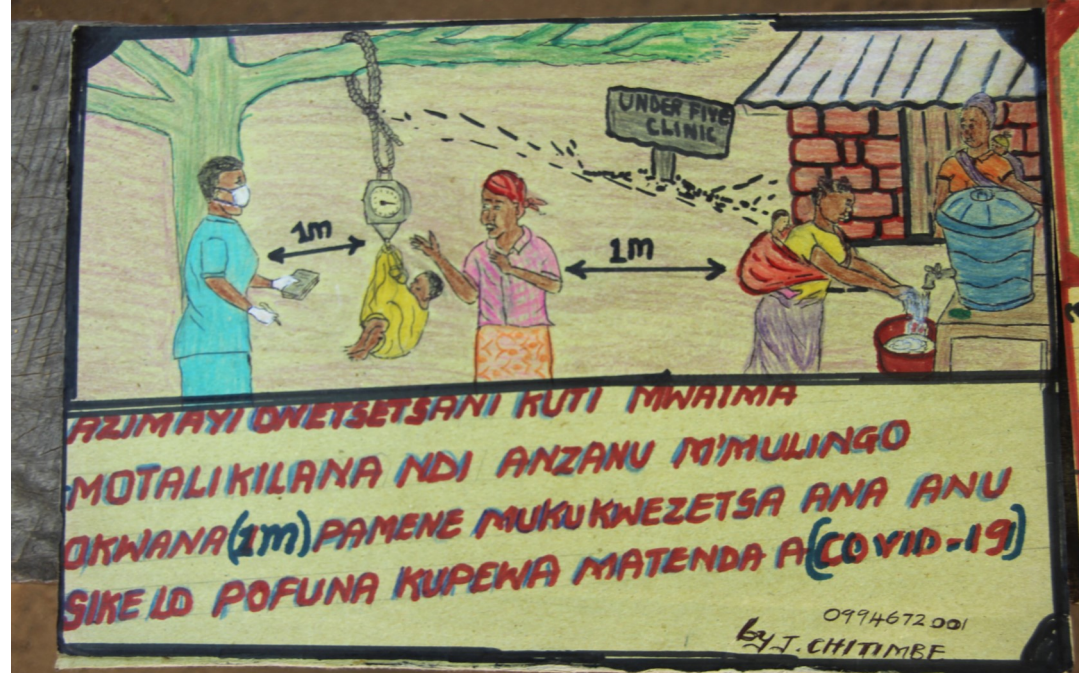 UNDER FIVE
CLINIC
1M
1M
AZIMAYI ONETSETSANI KUTI MWAIMA
MOTALIKILANA NDI ANZANU M'MULINGO
OKWANA (1M) PAMENE MUKUKWEZETSA ANA ANU
SIKELO POFUNA KUPEWA MATENDA A (COVID-19)
0994672001
by J. CHITIMBE